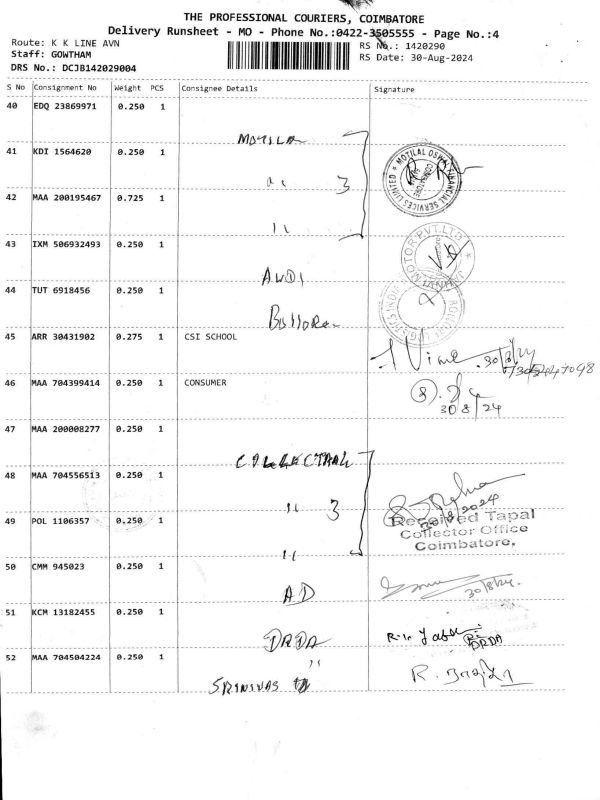 THE PROFESSIONAL COURIERS, COIMBATORE
Delivery Runsheet - MO - Phone No.:0422-3505555 - Page No.:4
Route: K K LINE AVN
RS No.: 1420290
Staff: GOWTHAM
RS Date: 30-Aug-2024
DRS No.: DCJB142029004
S No Consignment No Weight PCS Consignee Details Signature
40 EDQ 23869971 0.250 1
MOTILA
41 KDI 1564620 0.250 1
" 3
MOTILAL OSWAL FINANCIAL SERVICES LIMITED
42 MAA 200195467 0.725 1
"
43 IXM 506932493 0.250 1
AUDI
JAANVI MOTOR PVT.LTD.
44 TUT 6918456 0.250 1
45 ARR 30431902 0.275 1 CSI SCHOOL
30/8/24
46 MAA 704399414 0.250 1 CONSUMER
30/8/24
47 MAA 200008277 0.250 1
COLLECTRAL
48 MAA 704556513 0.250 1
" 3
30/8/2024
49 POL 1106357 0.250 1
Received Tapal
Collector Office
Coimbatore.
"
50 CMM 945023 0.250 1
AD
30/8/24.
51 KCM 13182455 0.250 1
DRDA
DRDA
52 MAA 704504224 0.250 1
"
SRINIVAS